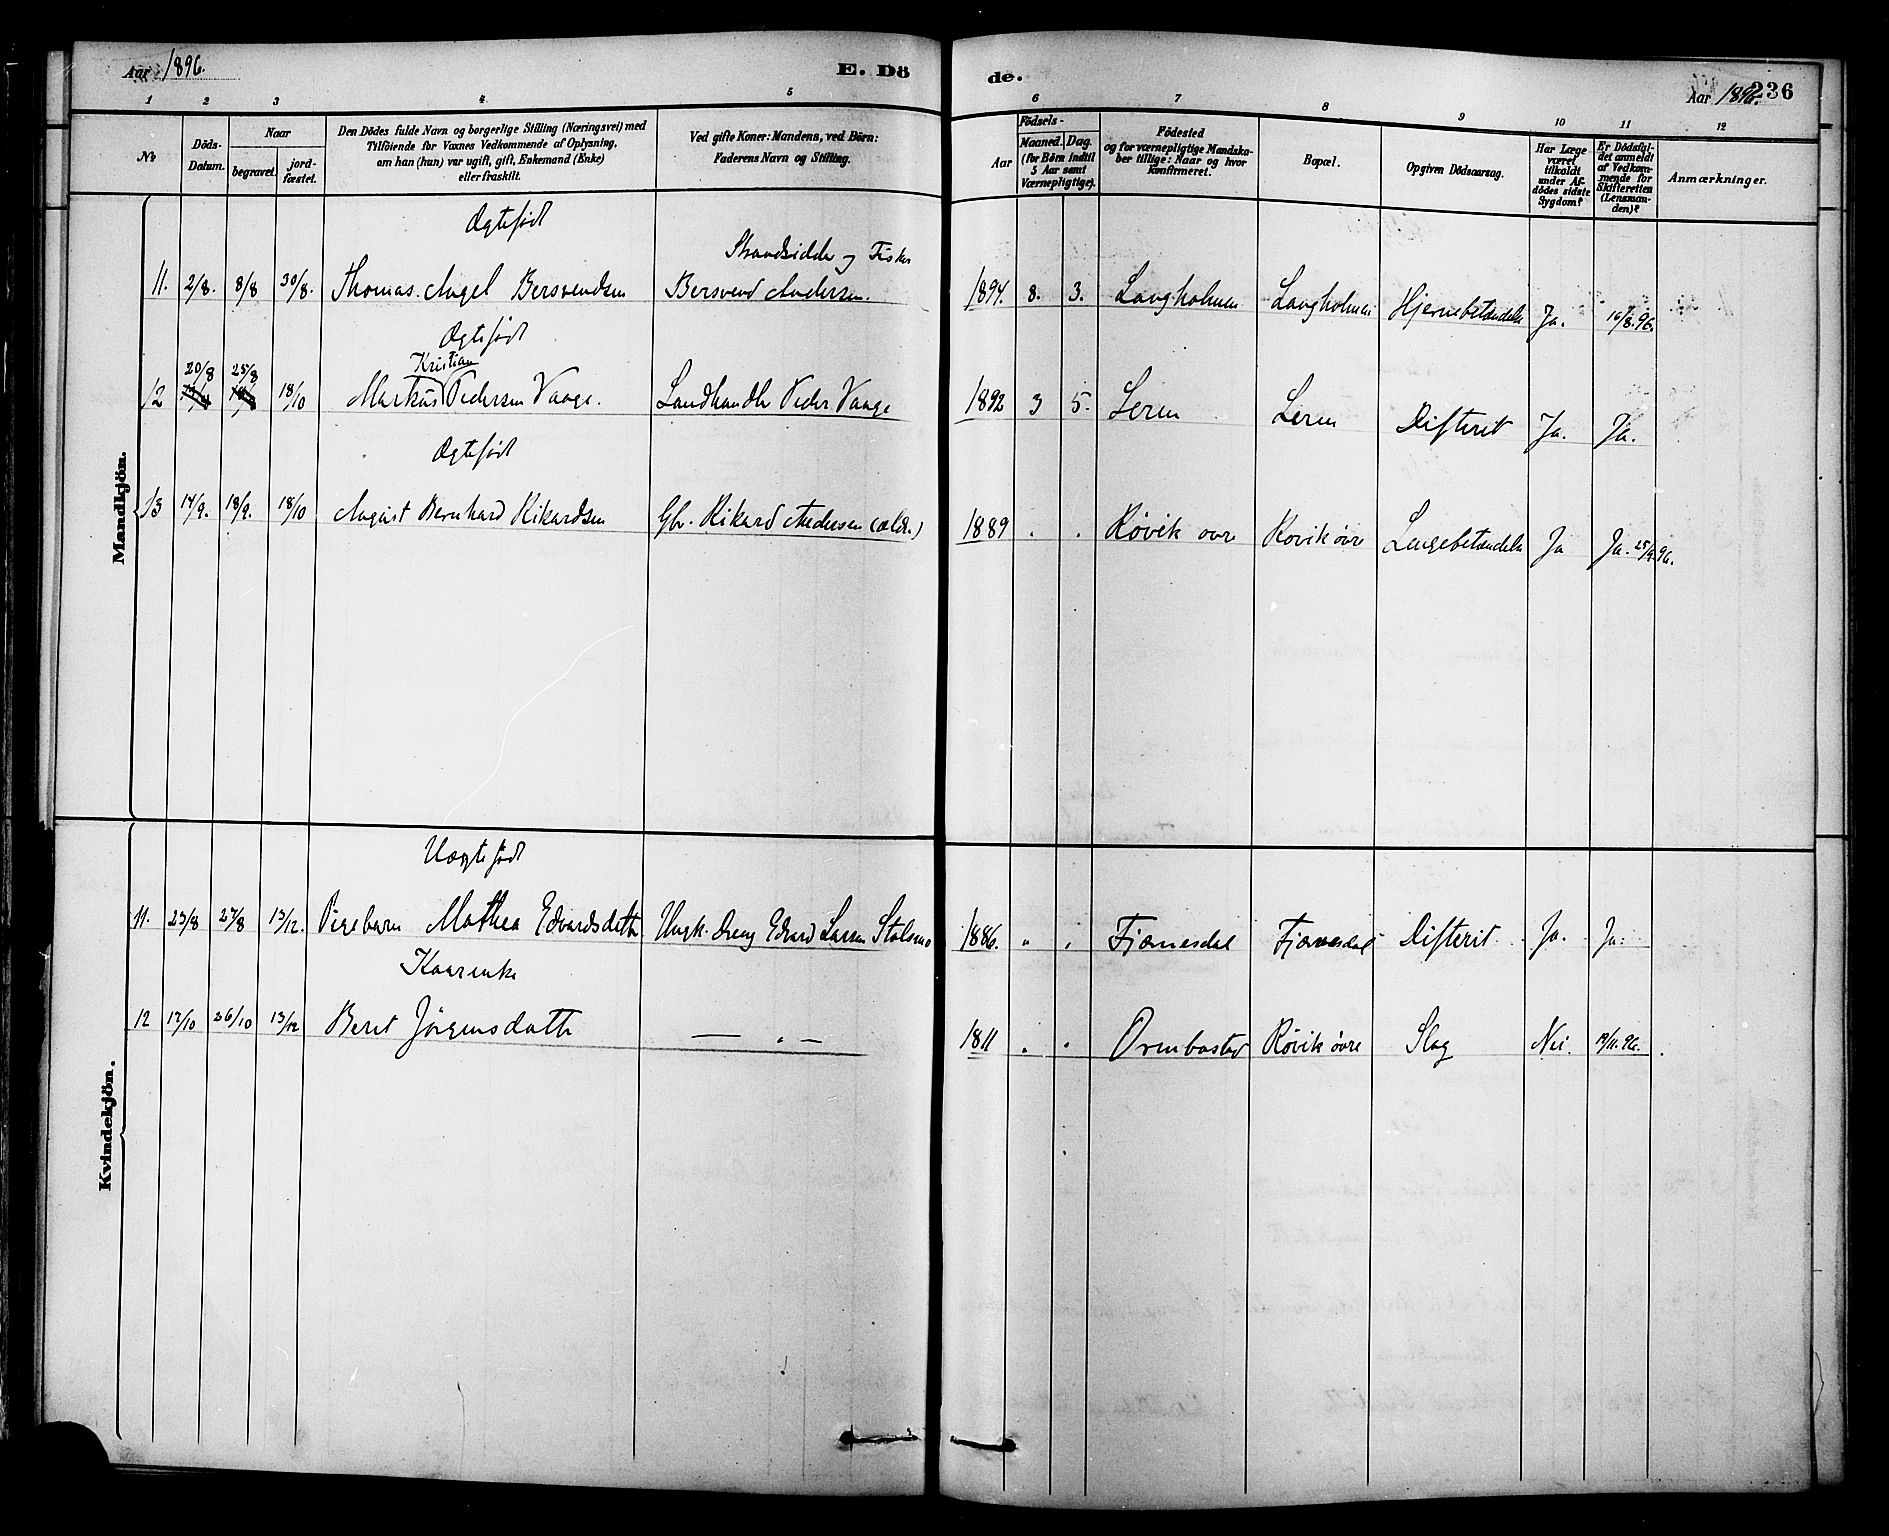 Aar 1896.
E. Dö
de.
Aar 1896.
236
1 2 3 4 5 6 7 8 9 10 11 12
No
Döds-Datum.
Naar
begravet.
jordfæstet.
Den Dödes fulde Navn og borgerlige Stilling (Næringsvei) med
Tilföiende for Vaxnes Vedkommende af Oplysning,
om han (hun) var ugift, gift, Enkemand (Enke)
eller fraskilt.
Ved gifte Koner: Mandens, ved Börn:
Faderens Navn og Stilling.
Födsels-
Aar
Maaned.
Dag.
(for Börn indtil
5 Aar samt
Værnepligtige).
Födested
og for værnepligtige Mandskaber tillige: Naar og hvor
konfirmeret.
Bopæl.
Opgiven Dödsaarsag.
Har Læge
været
tilkaldt
under Afdödes sidste
Sygdom?
Er Dödsfaldet anmeldt
af Vedkommende for
Skifteretten
(Lensmanden)?
Anmærkninger.
Mandkjön.
Ægtefødt
Strandsidder og Fisker
11. 2/8. 8/8 30/8. Thomas Angel Bersvendsen Bersvend Andersen. 1894. 8. 3. Langholmen Langholmen Hjernebetændelse Ja. 16/8.96.
Ægtefødt
Kristian
20/8 25/8
12 18/10 Markus Pedersen Vaage. Landhandler Peder Vaage 1892 3 5. Leren Leren Difterit Ja. Ja.
Ægtefødt
13 14/9. 18/9. 18/10 August Bernhard Rikardsen Gbr. Rikard Andersen (ældr.) 1889 . . Røvik øvre Røvik øvre Lungebetændelse Ja Ja. 25/9 96.
Kvindekjön.
Uægtefødt
11. 23/8 27/8 13/12. Pigebarn Mathea Edvardsdatter Ungk. Dreng Edvard Larsen Stolsmo 1886. " . Fjærnesdal Fjærnesdal Difterit. Ja. Ja.
Kaarenke
12 17/10 26/10 13/12 Beret Jørgensdatter — " — 1811 . . Røvik øvre Slag Nei. 19/11.96.